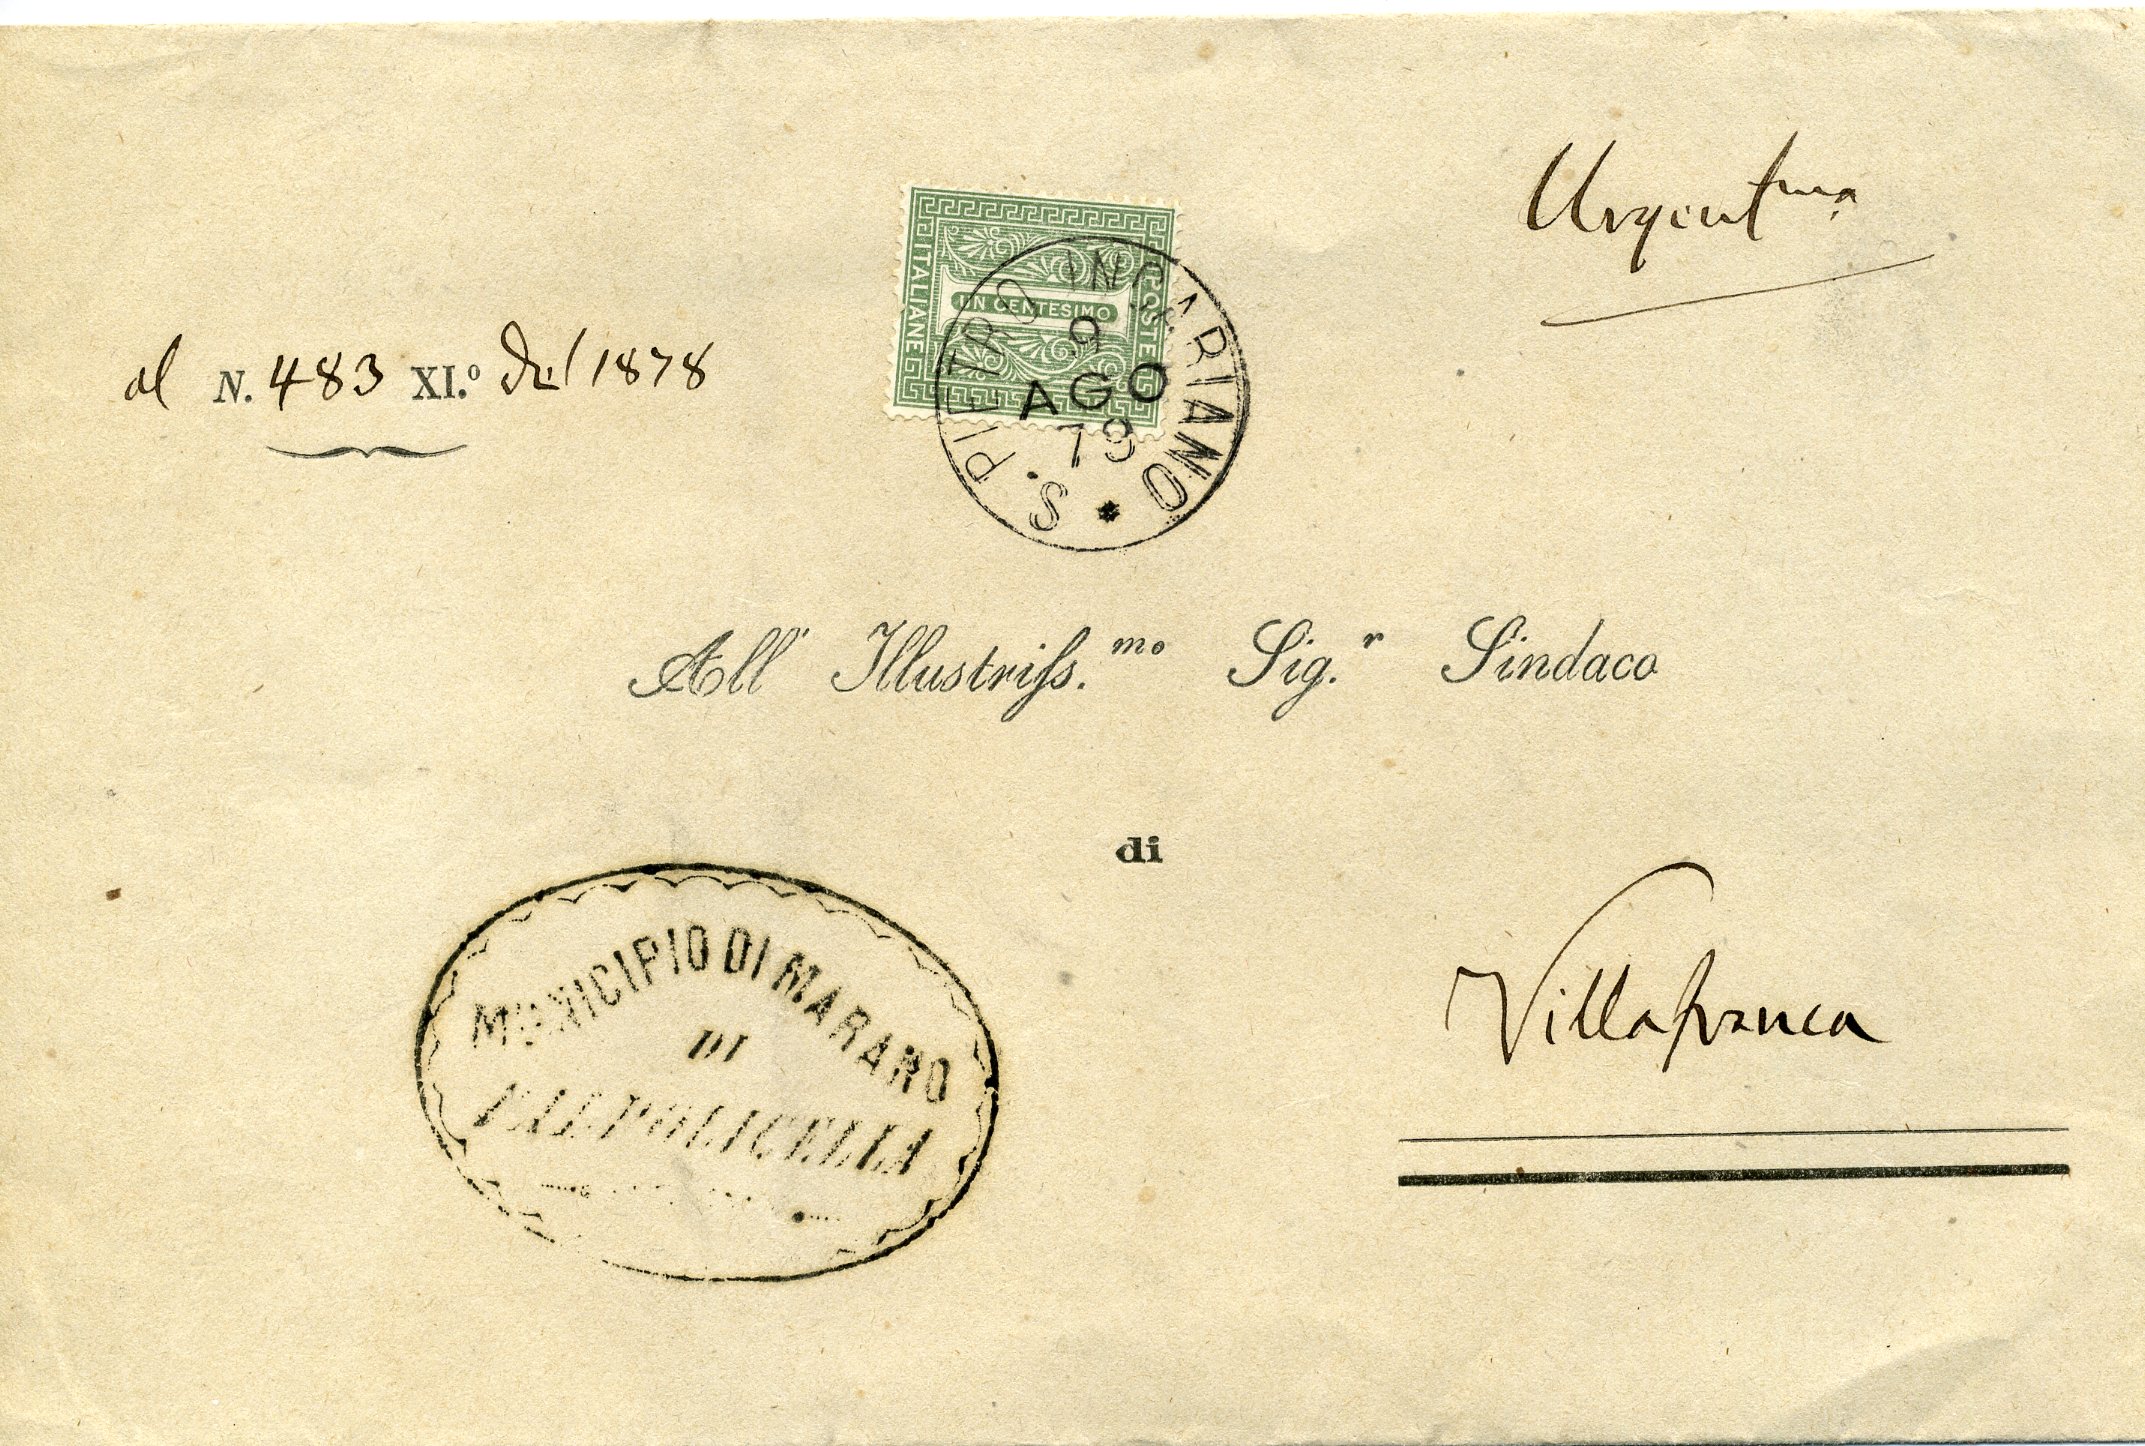 Urgent.ma
POSTE ITALIANE
UN CENTESIMO
S. PIETRO INCARIANO
9
AGO
79
al N. 483 XI.° del 1878
All' Illustriss.mo Sig.r Sindaco
di
Villafranca
MUNICIPIO DI MARANO
DI
VALPOLICELLA